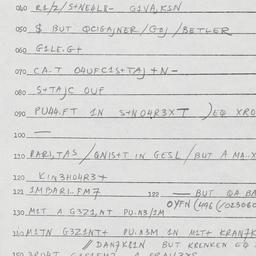 040 R1/2/S+NE4L8- G1VA,KSN
050 $ BUT QCIGAJNER/GBJ/BETLER
060 G1LE.G+
070 CA.T 04UFC1S+TAJ+N-
080 S+TAJC OUF
090 PU44.FT 1N S+NO4R3XT )EQ XRO
100 —
110 BARI,TAS/QNIS+T IN GESL/BUT A MA..X
120 KIN3HO4R3+
121 1MBARI..FM7 122 — BUT QA BA
OYFN (496(/023060
130 M1T A G3Z1,NT PU.N3/1M
140 M1TN G3Z1NT+ PU.N3M 1N M1T+ KRAN7K
//DAN7KE1N BUT KRENKEN EQ